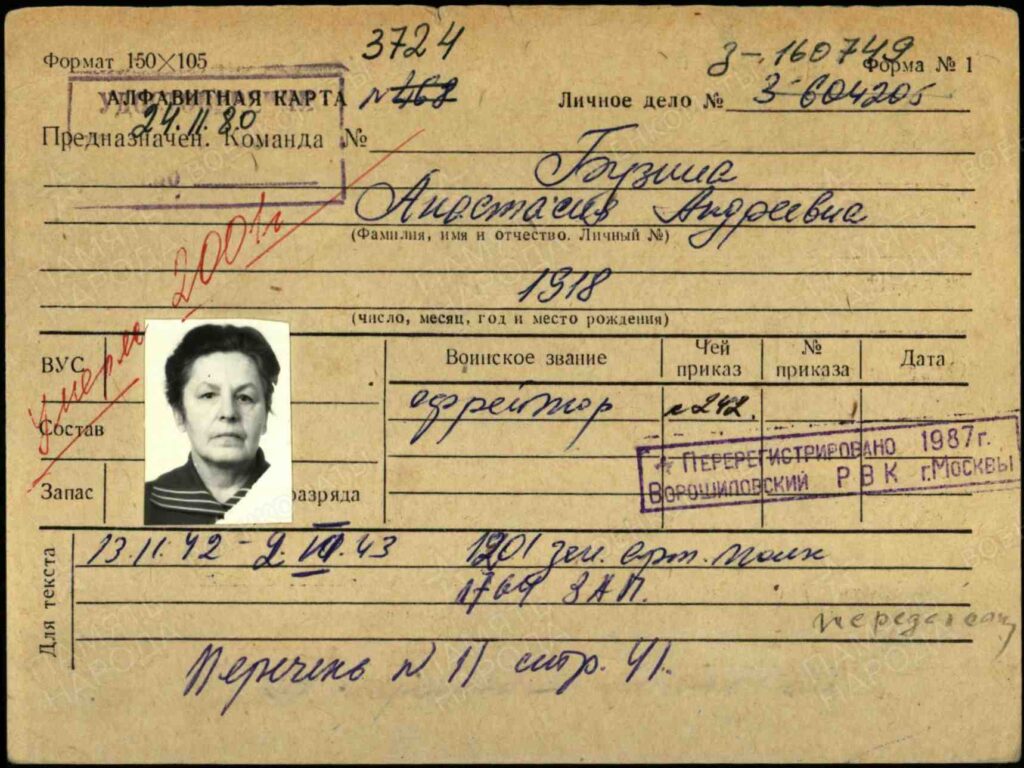 3724
З-160749
Формат 150×105
Форма № 1
АЛФАВИТНАЯ КАРТА №468
Личное дело № З-604205
24.11.80
Предназначен. Команда №
Бузина
Анастасия Андреевна
(Фамилия, имя и отчество. Личный №)
Умерла 2001г
1918
(число, месяц, год и место рождения)
ВУС
Воинское звание
Чей приказ
№ приказа
Дата
ефрейтор
№242.
Состав
ПЕРЕРЕГИСТРИРОВАНО 1987г.
ВОРОШИЛОВСКИЙ РВК г.МОСКВЫ
Запас
разряда
Для текста
13.11.42 - 2. .43 1201 зен. арт. полк
1769 ЗАП.
Перечень № 11 стр. 41.
ПАМЯТЬ НАРОДА